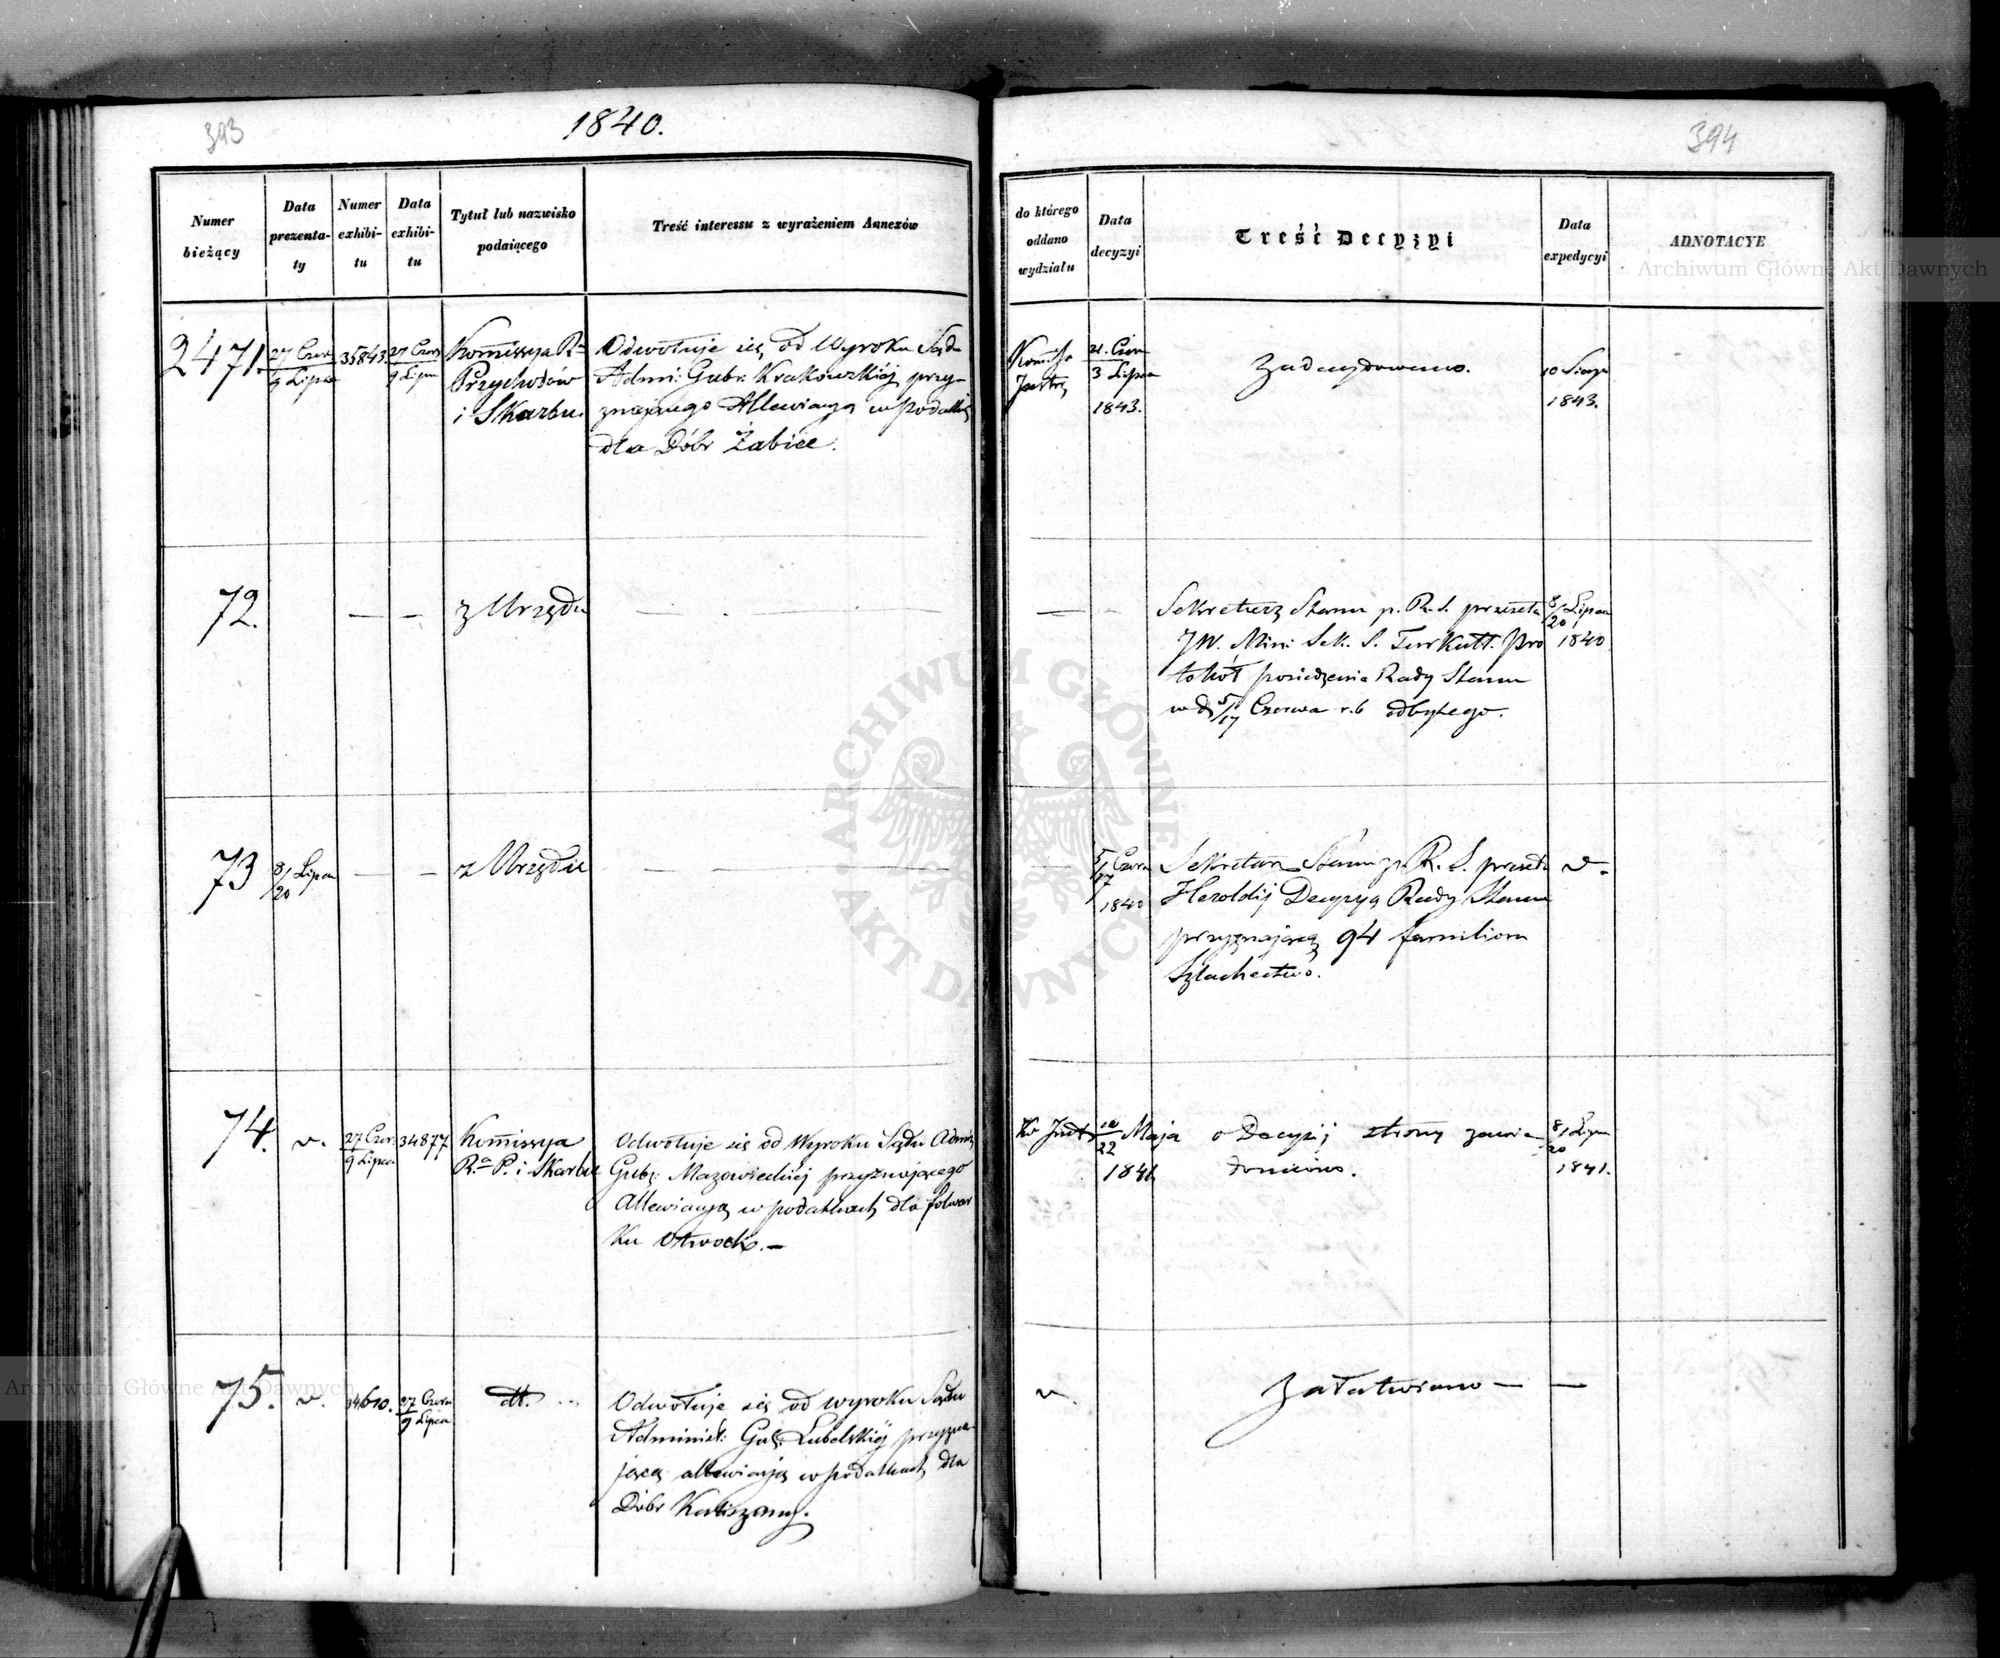 393
1840.
Numer bieżący
Data prezentaty
Numer exhibitu
Data exhibitu
Tytuł lub nazwisko podaiącego
Treść interessu z wyrażeniem Annexów
2471.
27 Czer
9 Lipca
35843.
27 Czer
9 Lipca
Kommissya Ra
Przychodów
i Skarbu.
Odwołuje się od Wyroku Sądu
Admi: Gub: Krakowskiej przy-
znającego Allewiacyą w podatku
dla Dóbr Żabiec.
72.
— —
z Urzędu
— — —
73
8/20 Lipca
— —
z Urzędu
— — —
74.
v.
27 Czer.
9 Lipca
34877
Kommissya
Ra P. i Skarbu
Odwołuje się od Wyroku Sądu Admin.
Gub: Mazowieckiej przyznającego
Allewiacyą w podatkach dla folwar
ku Otwock. —
75.
v.
34610.
27 Czerw
9 Lipca
dt.
Odwołuje się od wyroku Sądu
Administ: Gub: Lubelskiej przyzna-
jącą allewiacyą w podatkach dla
Dóbr Kaliszany.
394
do którego oddano wydziału
Data decyzyi
Treść Decyzyi
Data expedycyi
ADNOTACYE
21. Czer
3 Lipca
1843.
Zadecydowano.
10 Sierp
1843.
— —
Sekretarz Stanu p. R. S. przesyła
JW. Mini Sek. S. Turkułł. Pro
tokół posiedzenia Rady Stanu
w d 5/17 Czerwca r. b odbytego.
8/20 Lipca
1840
—
5/17 Czerw
1840
Sekretarz Stanu p. R. S. przesyła
Heroldij Decyzyą Rady Stanu
przyznającą 94 familiom
Szlachectwo.
v.
10
22 Maja
1841
o Decyzij strony zawia-
domiono.
8/20 Lipca
1841.
v
Załatwiono — —
Archiwum Główne Akt Dawnych
Archiwum Główne Akt Dawnych
ARCHIWUM GŁÓWNE AKT DAWNYCH